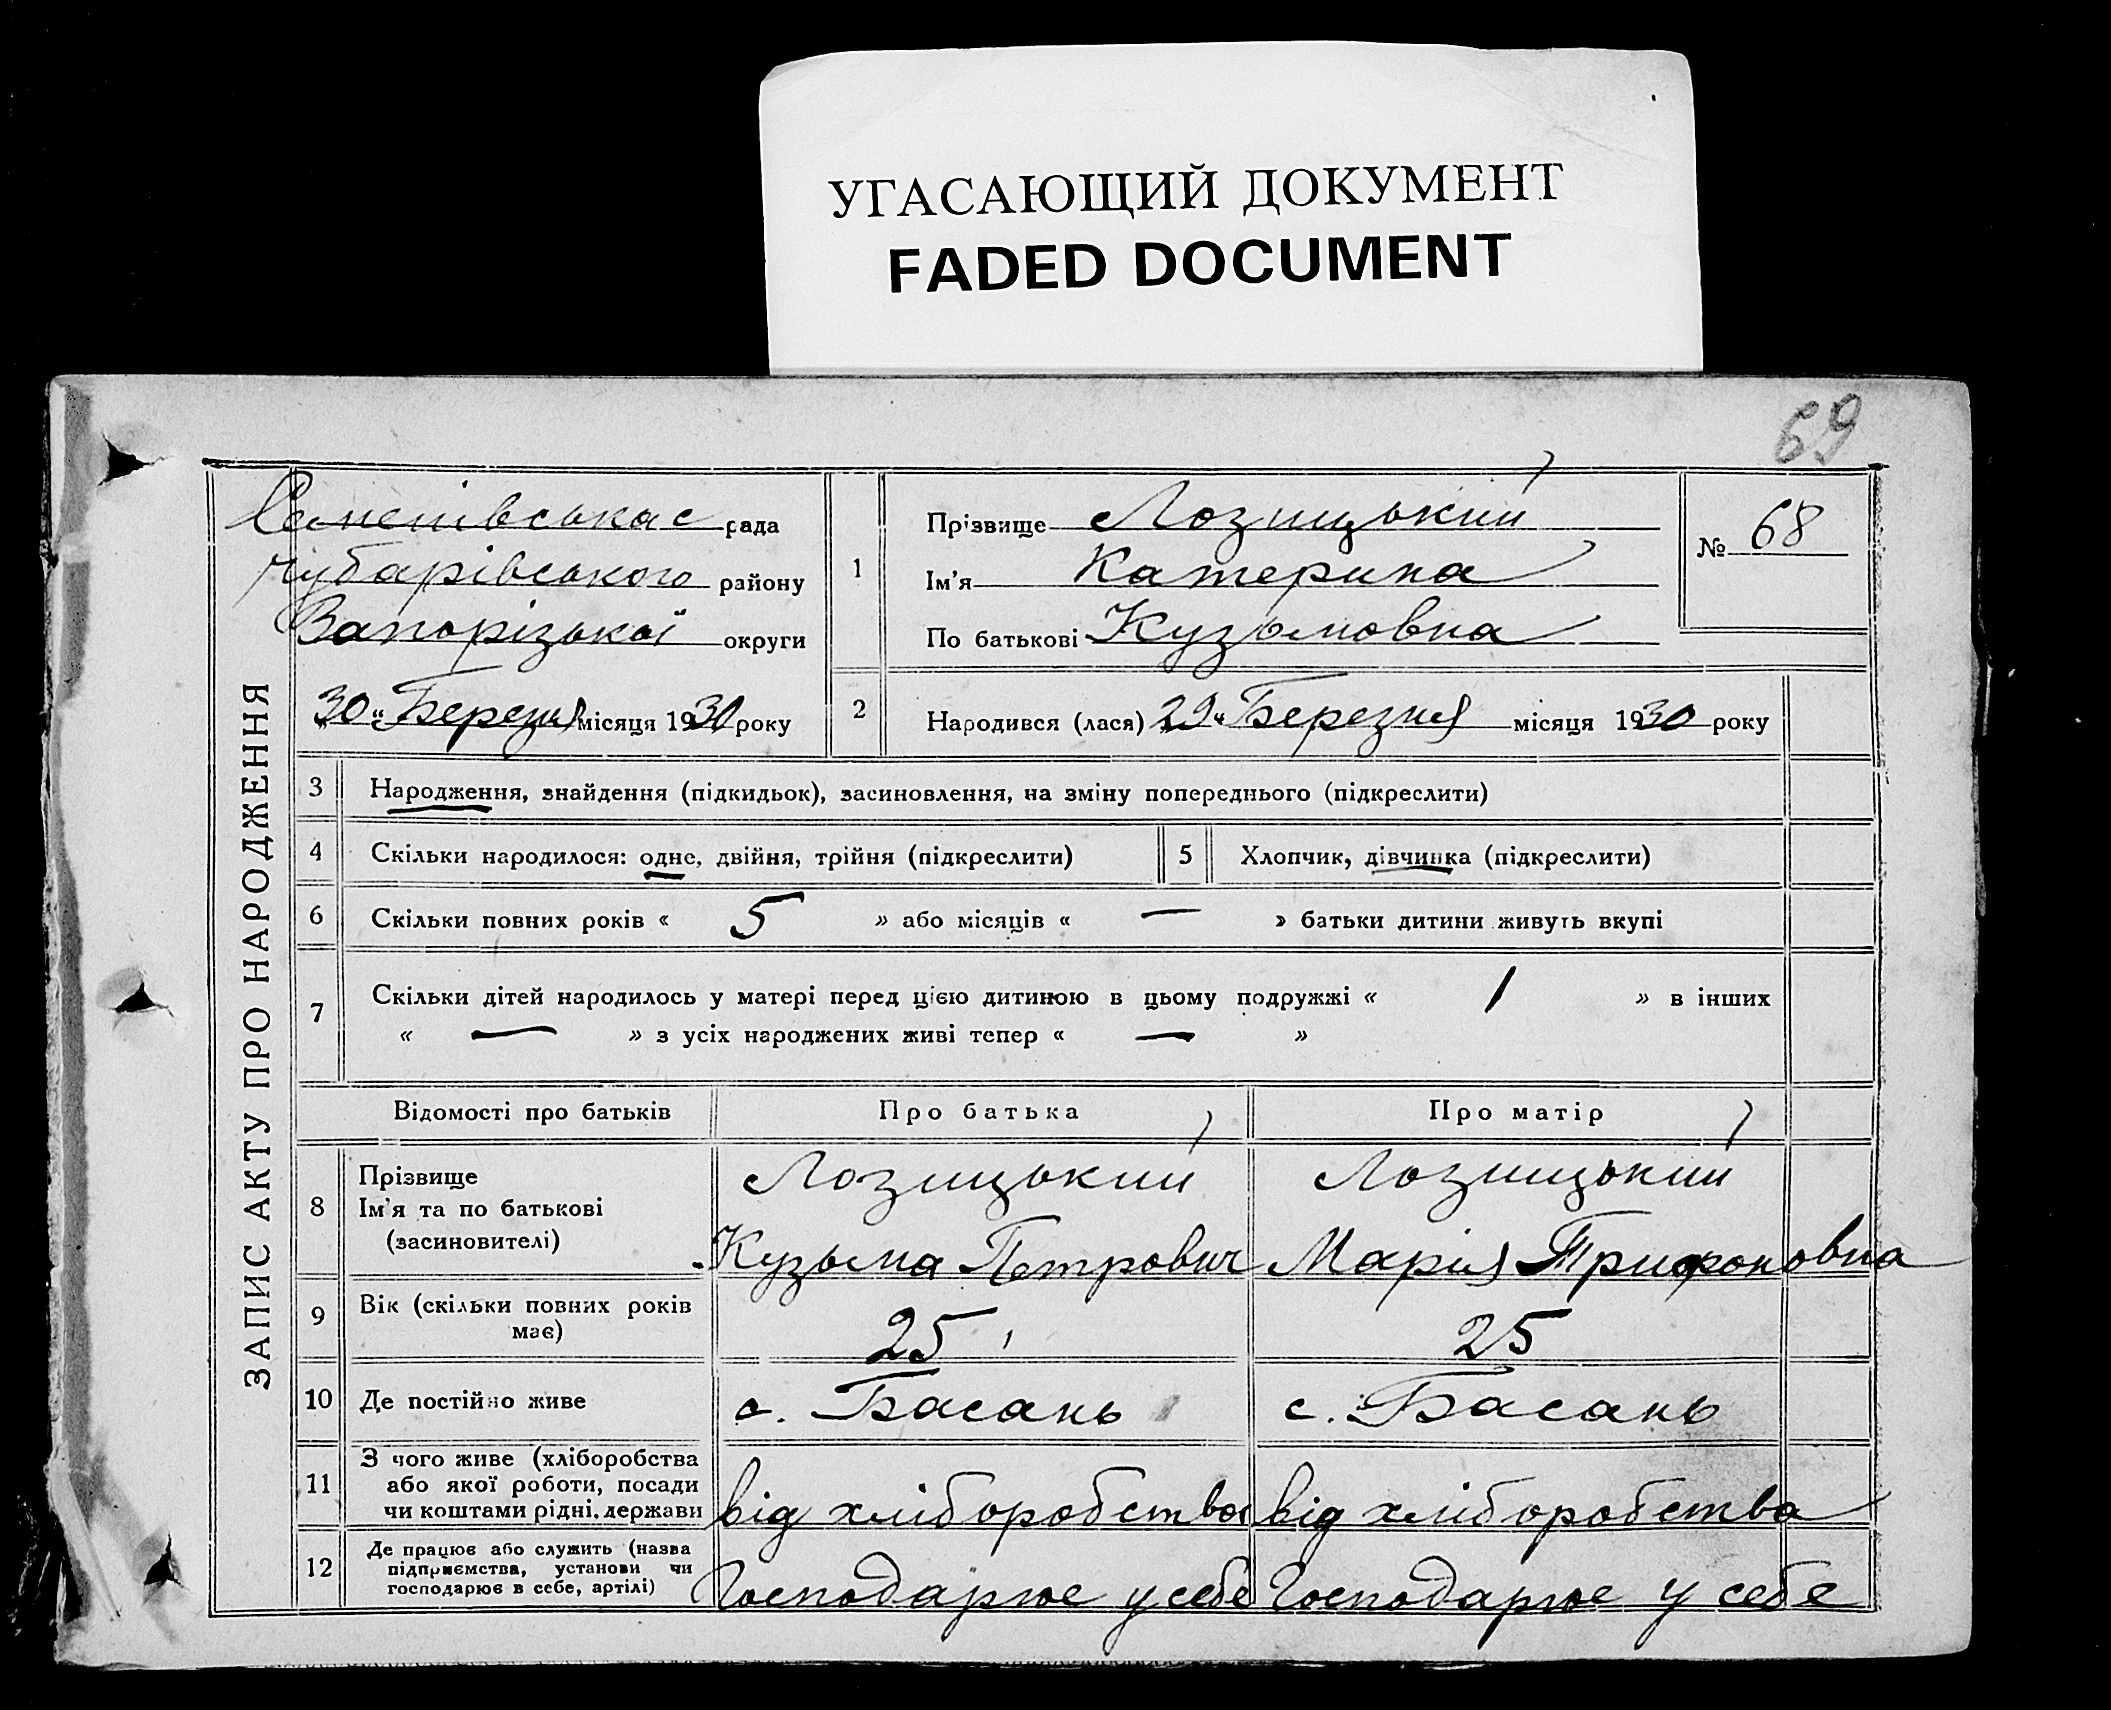 УГАСАЮЩИЙ ДОКУМЕНТ
FADED DOCUMENT
69
ЗАПИС АКТУ ПРО НАРОДЖЕННЯ
рада
Чубарівського району
Запорізької округи
„30“ Березня місяця 1930 року
1
Прізвище Лозицький
Ім'я Катерина
По батькові Кузьмовна
№ 68
2 Народився (лася) „29“ Березня місяця 1930 року
3 Народження, знайдення (підкидьок), засиновлення, на зміну попереднього (підкреслити)
4 Скільки народилося: одне, двійня, трійня (підкреслити) 5 Хлопчик, дівчинка (підкреслити)
6 Скільки повних років « 5 » або місяців « — » батьки дитини живуть вкупі
7 Скільки дітей народилось у матері перед цією дитиною в цьому подружжі « 1 » в інших
« — » з усіх народжених живі тепер « — »
Відомості про батьків Про батька Про матір
8 Прізвище
Ім'я та по батькові
(засиновителі)
Лозицький
Кузьма Петрович
Лозицький
Марія Трифоновна
9 Вік (скільки повних років
має)
25 25
10 Де постійно живе с. Басань с. Басань
11 З чого живе (хліборобства
або якої роботи, посади
чи коштами рідні, держави
від хліборобства від хліборобства
12 Де працює або служить (назва
підприємства, установи чи
господарює в себе, артілі)
Господарює у себе Господарює у себе